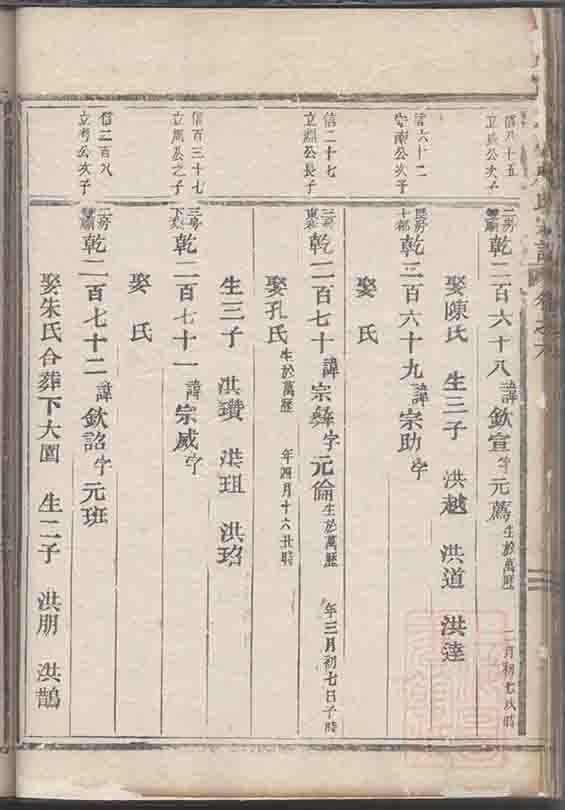 信八十五
立 公次子
二房
乾二百六十八諱欽宣字元薦生於萬歷 二月初七戌時
娶陳氏 生三子 洪越 洪道 洪達
信六十二
公次子
乾二百六十九諱宗助字
娶 氏
信二十七
立 公長子
乾二百七十諱宗彝字元倫生於萬歷 年三月初七日子時
娶孔氏生於萬歷 年四月十六丑時
生三子 洪瓚 洪珇 洪珞
信百三十七
立 公之子
三房
乾二百七十一諱宗威字
娶 氏
信二百八
立 公次子
二房
乾二百七十二諱欽詔字元班
娶朱氏合葬下大園 生二子 洪朋 洪鵲